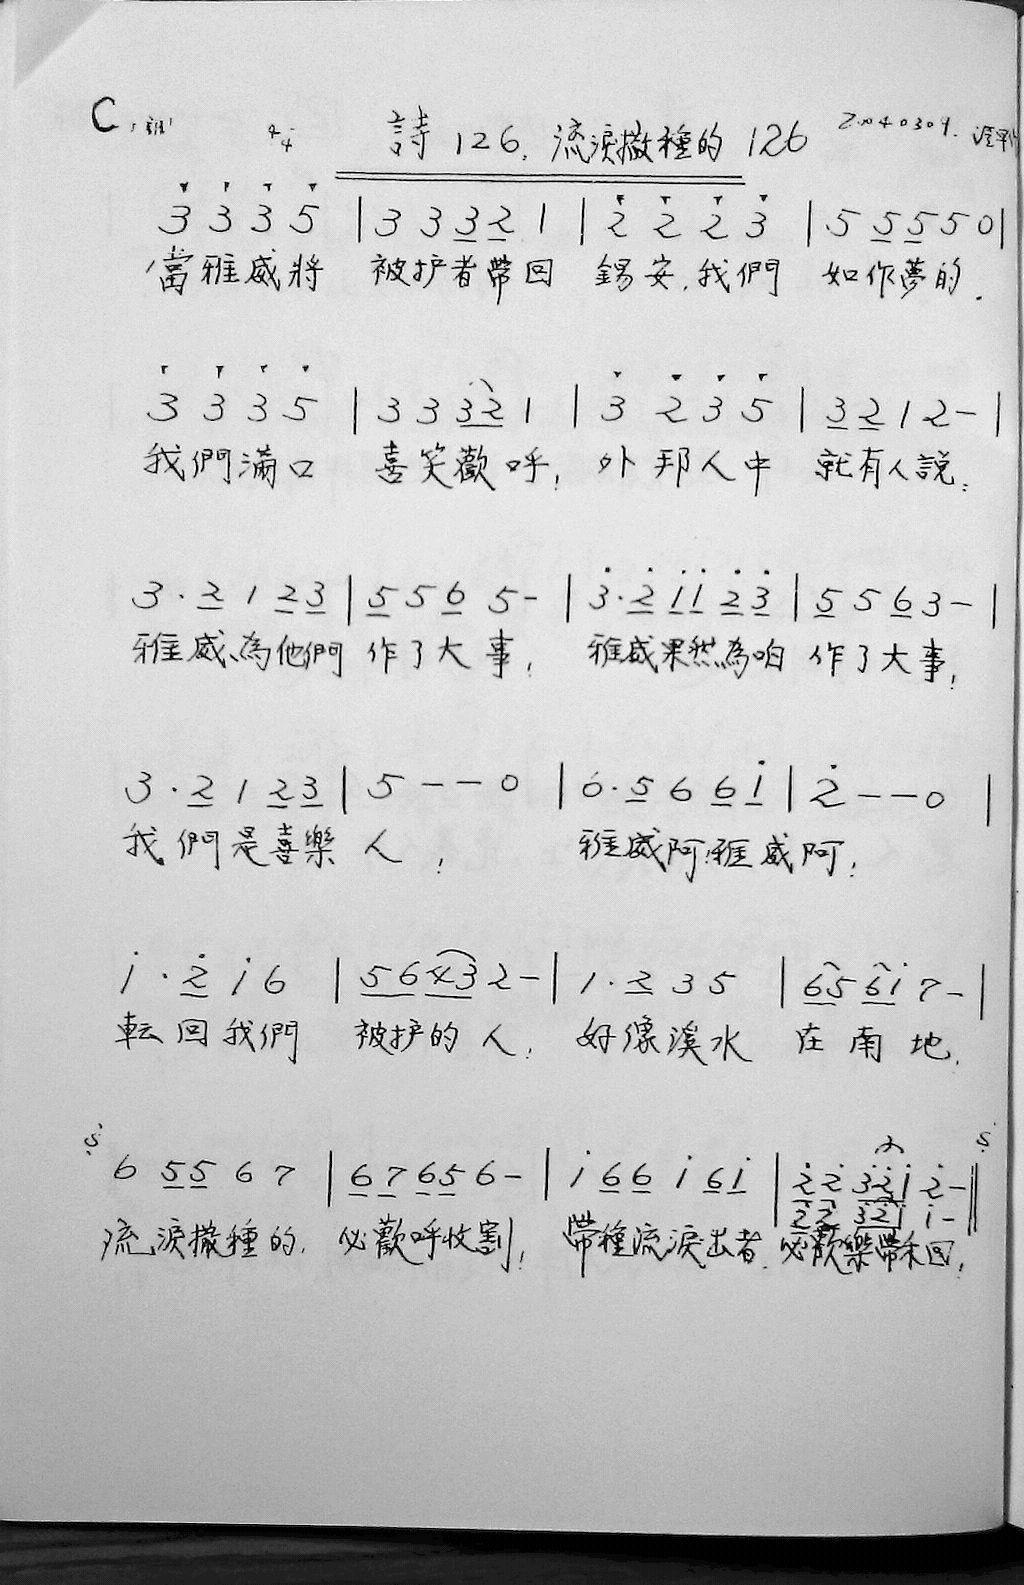 C 調 4/4 詩 126. 流淚撒種的 126 20040309.
3 3 3 5 | 3 3 3 2 1 | 2 2 2 3 | 5 5 5 5 0 |
當雅威將 被护者帶回 錫安,我們 如作夢的.
3 3 3 5 | 3 3 3 2 1 | 3 2 3 5 | 3 2 1 2 - |
我們滿口 喜笑歡呼; 外邦人中 就有人說:
3 · 2 1 2 3 | 5 5 6 5 - | 3 · 2 1 1 2 3 | 5 5 6 3 - |
雅威、為他們 作了大事! 雅威果然為咱 作了大事!
3 · 2 1 2 3 | 5 - - 0 | 6 · 5 6 6 1 | 2 - - 0 |
我們是喜樂人! 雅威阿!雅威阿!
1 · 2 1 6 | 5 6 4 3 2 - | 1 · 2 3 5 | 6 5 6 1 7 - |
転回我們 被护的人; 好像溪水 在南地.
S 6 5 5 6 7 | 6 7 6 5 6 - | 1 6 6 1 6 1 | 2 2 3 2 1 2 - || S
2 2 3 2 1 1 -
流淚撒種的. 必歡呼收割! 帶種流淚出者. 必歡樂帶禾回!